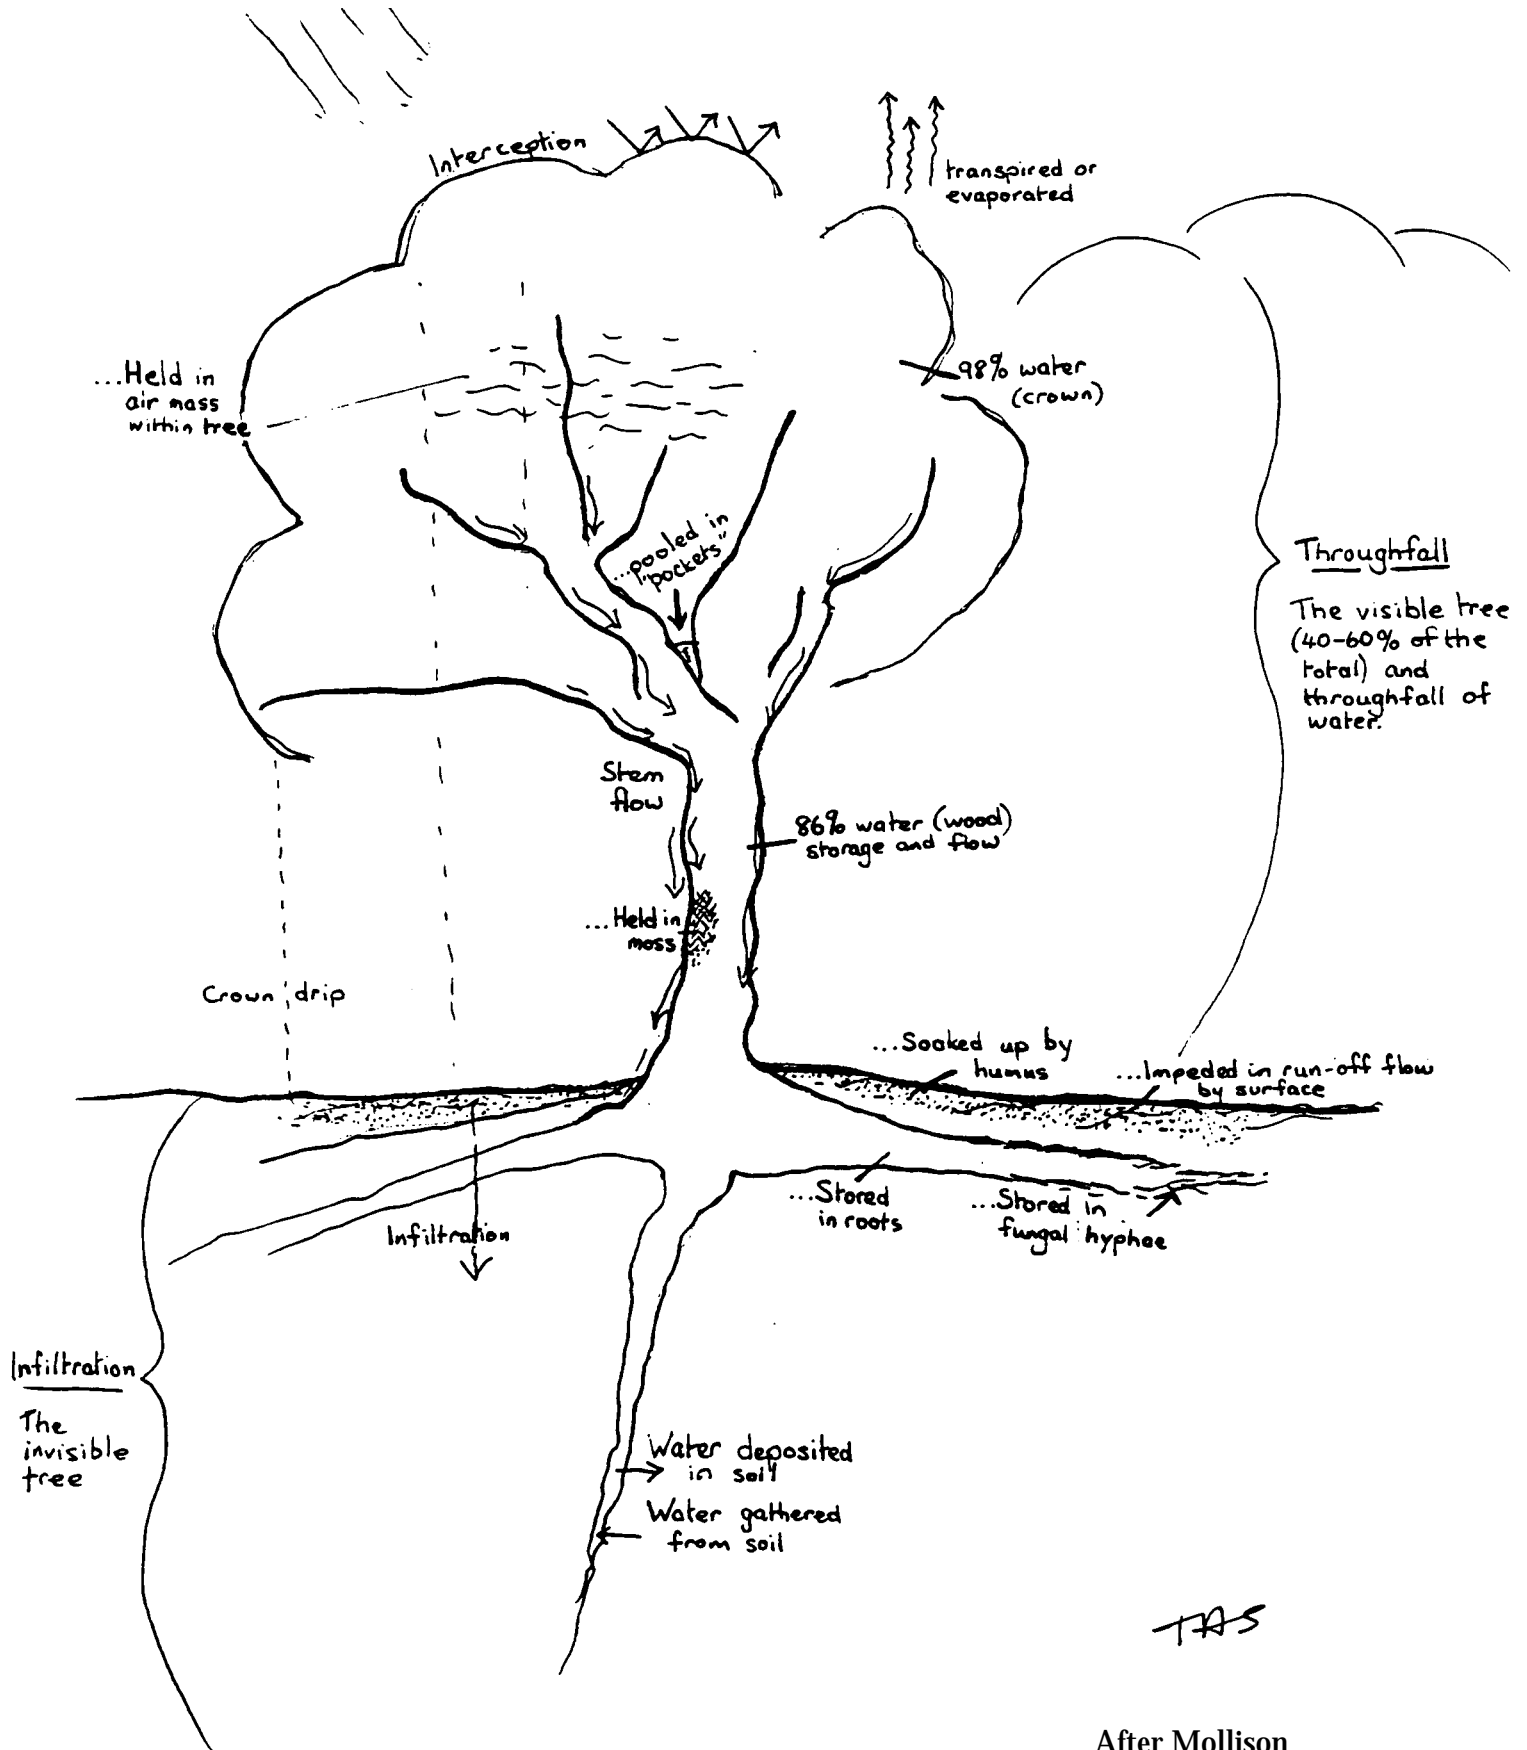 Interception
transpired or
evaporated
...Held in
air mass
within tree
98% water
(crown)
...pooled in
"pockets"
Throughfall
The visible tree
(40-60% of the
total) and
throughfall of
water.
Stem
flow
86% water (wood)
storage and flow
...Held in
moss
Crown drip
...Soaked up by
humus
...Impeded in run-off flow
by surface
...Stored
in roots
...Stored in
fungal hyphae
Infiltration
Infiltration
The
invisible
tree
Water deposited
in soil
Water gathered
from soil
TAS
After Mollison